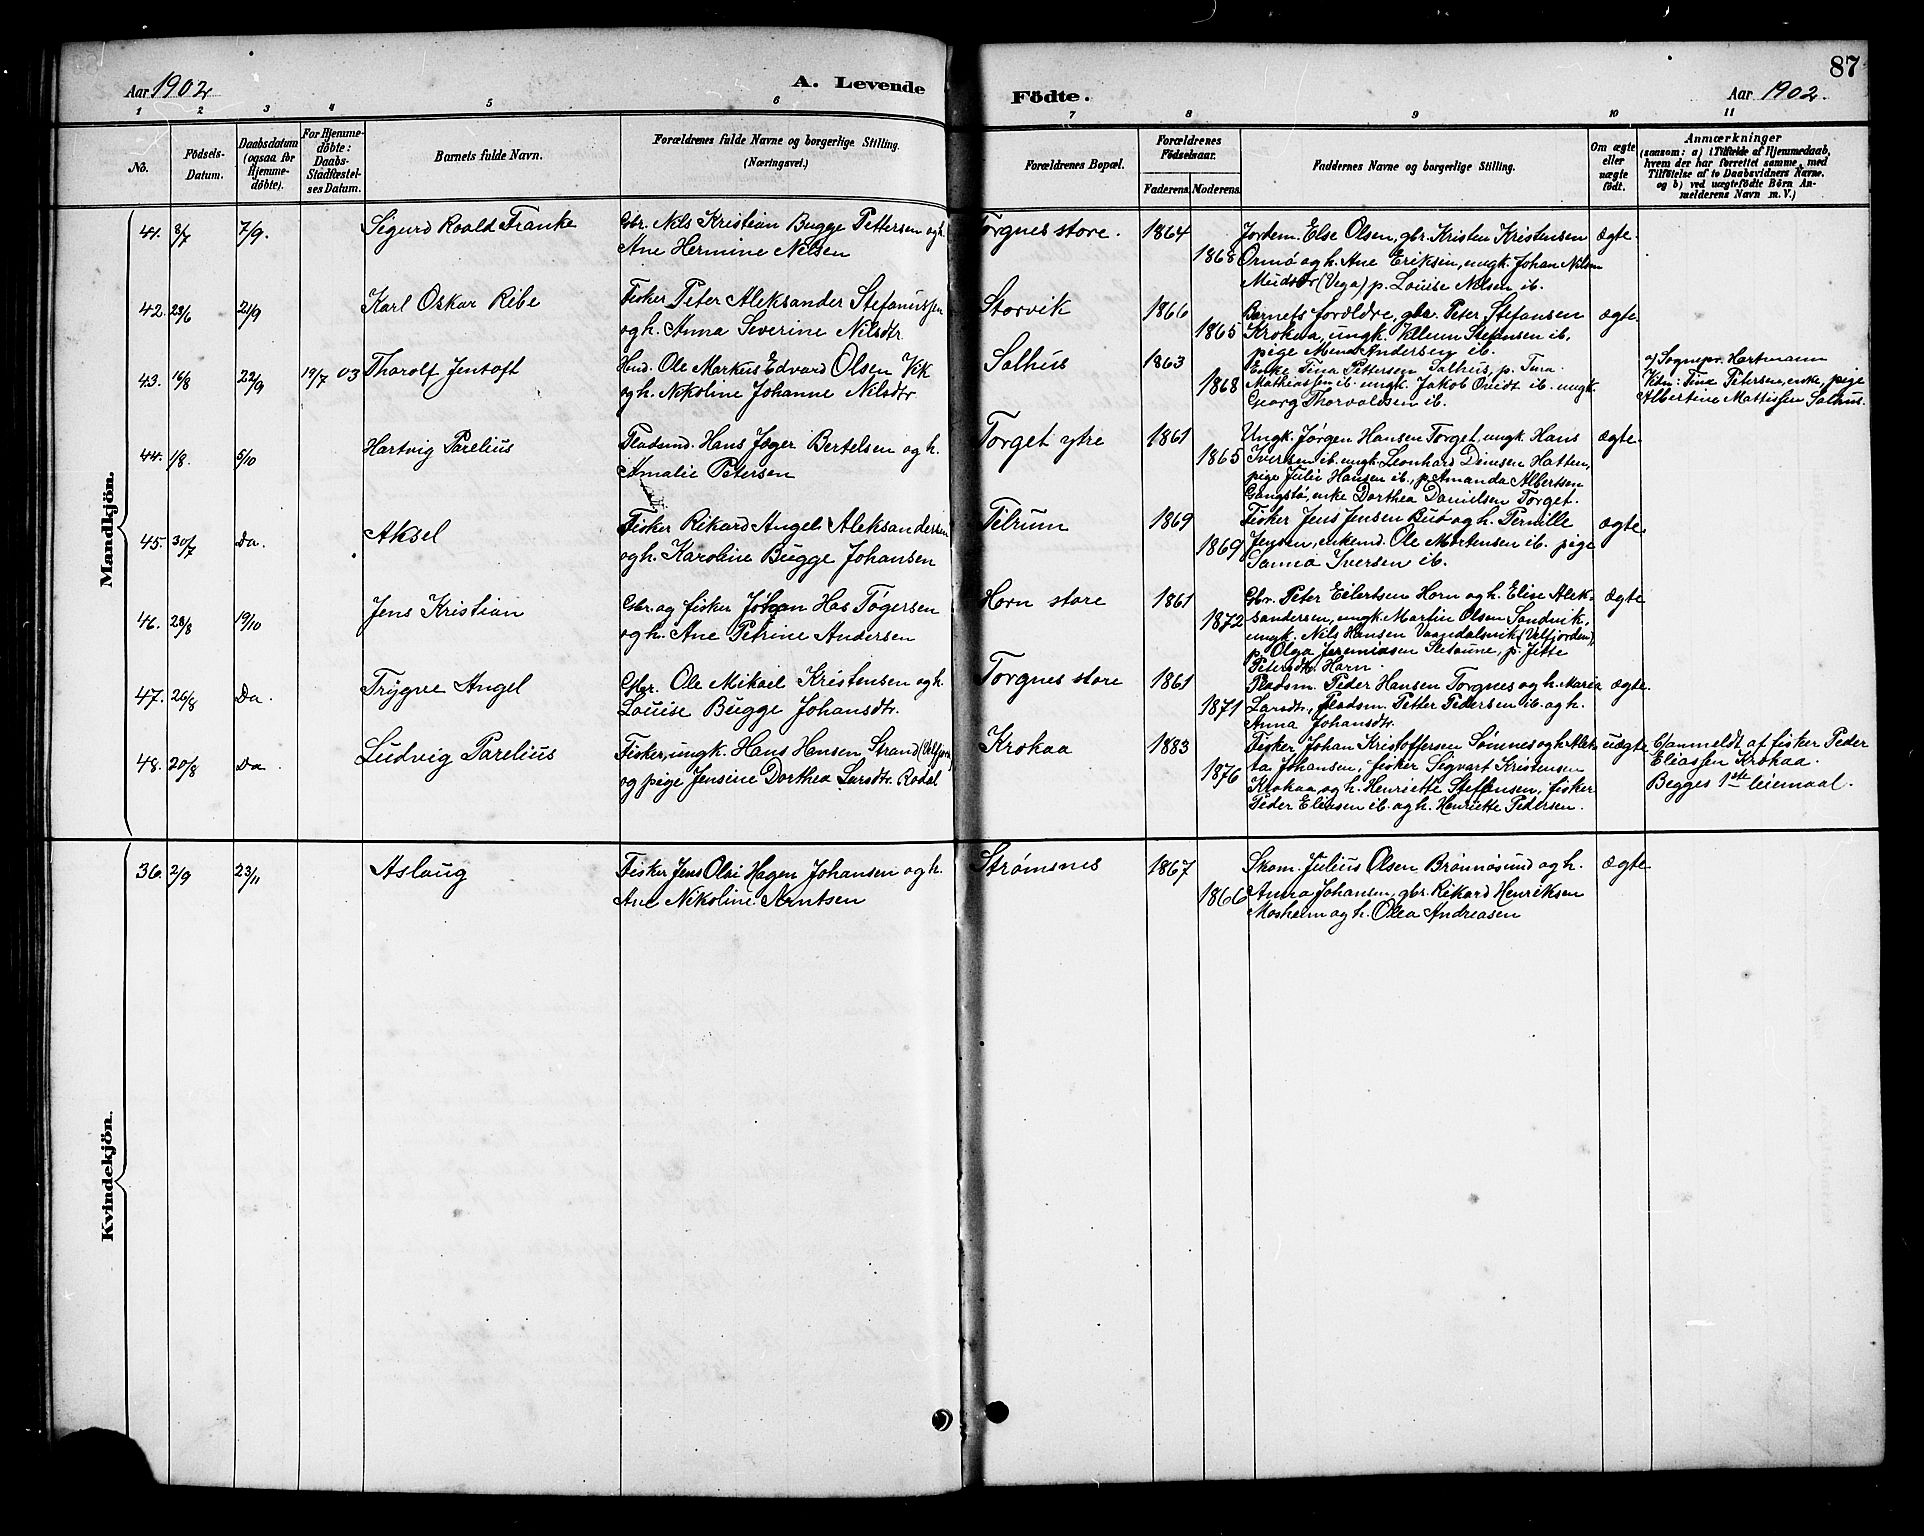 87
Aar 1902
A. Levende
Födte.
Aar 1902.
1 2 3 4 5 6 7 8 9 10 11
No.
Födsels-
Datum.
Daabsdatum
(ogsaa for
Hjemme-
döbte).
For Hjemme-
döbte:
Daabs-
Stadfæstel-
ses Datum.
Barnets fulde Navn.
Forældrenes fulde Navne og borgerlige Stilling.
(Næringsvei.)
Forældrenes Bopæl.
Forældrenes
Födselsaar.
Faderens.
Moderens.
Faddernes Navne og borgerlige Stilling.
Om ægte
eller
uægte
födt.
Anmærkninger
(saasom: a) i Tilfælde af Hjemmedaab,
hvem der har forrettet samme, med
Tilföielse af to Daabsvidners Navne.
og b) ved uægtefödte Börn An-
melderens Navn m. V.)
Mandkjön.
41. 3/7 7/9. Sigurd Roald Franke
Gbr. Nils Kristian Bugge Pettersen og h.
Ane Hermine Nilsen
Torgnes store. 1864 1868
Jordem. Else Olsen, gbr. Kristen Kristensen
Ormø og h. Ane Eriksen, ungk. Johan Nilsen
(Vega) p. Louise Nelsen ib.
ægte.
42. 23/6 21/9 Karl Oskar Ribe
Fisker Peter Aleksander Stefanussen
og h. Anna Severine Nilsdtr.
Storvik 1866 1865
Barnets forældre, gbr. Peter Stefansen
Krokaa, ungk. Vilhum Stefansen ib,
pige Mina Andersen ib.
ægte.
43. 16/8 22/9 19/7 03 Tharolf Jentoft
Hmd. Ole Markus Edvard Olsen Vik
og h. Nikoline Johanne Nilsdtr.
Salhus 1863 1868
Enke Tina Pettersen Salhus, p.
Mathiassen ib. ungk. Jakob ib. ungk.
Georg Thorvaldsen ib.
a/ Sognepr. Hartmann
Vidn: Tine Petersen, enke, pige
Albertine Mattissen Salhus.
44. 1/8. 5/10 Hartvig Parelius
Pladsmd. Hans Jæger Bertelsen og h.
Amalie Petersen
Torget ytre 1861 1865
Ungk. Jørgen Hansen Torget, ungk. Hans
Iversen ib. ungk. Leonhard Dinesen Hatten,
pige Julie Hansen ib., p. Amanda Albertsen
Gangstø, enke Dorthea Danielsen Torget.
ægte.
45. 30/7 Do. Aksel
Fisker Rikard Angel Aleksandersen
og h. Karoline Bugge Johansen
Tilrum 1869 1869
Fisker Jens Jensen Buø og h. Pernille
Jensen, enkemd. Ole Mortensen ib. pige
Sanna Iversen ib.
ægte.
46. 28/8 19/10 Jens Kristian
Gbr. og fisker Johan Has Tøgersen
og h. Ane Petrine Andersen
Horn store 1861 1872
Gbr. Peter Eilertsen Horn og h. Elise Alek-
sandersen, ungk. Martin Olsen Sandvik,
ungk. Nils Hansen Vaandalsvik (Velfjorden),
p. Olga Jeremiasen Sletaune, p. Jette
Petersdtr. Horn.
ægte
47. 26/8 Do. Trygve Angel
Gbr. Ole Mikael Kristensen og h.
Louise Bugge Johansdtr.
Torgnes store 1861 1871
Pladsm. Peder Hansen Torgnes og h. Maria
Larsdtr, pladsm. Petter Pedersen ib. og h.
Anna Johansdtr.
ægte.
48. 20/8 Do. Ludvig Parelius
Fisker, ungk. Hans Hansen Strand (Velfjord)
og pige Jensine Dorthea Larsdtr. Rodal
Krokaa 1883 1876
Fisker Johan Kristoffersen Sømnes og h. Alet-
ta Johansen, fisker Sigvart Kristensen
Krokaa, og h. Henriette Steffensen, fisker
Peder Eliasen ib. og h. Henriette Pedersen.
uægte
b/ anmeldt af fisker Peder
Eliassen Krokaa.
Begges 1ste leiemaal.
Kvindekjön.
36. 2/9 23/11 Aslaug
Fisker Jens Olai Hagen Johansen og h.
Ane Nikoline Arntsen
Strømsnes 1867 1866
Skom. Julius Olsen Brønnøsund og h.
Anna Johansen, gbr. Rikard Henriksen
Mosheim og h. Olea Andreasen
ægte